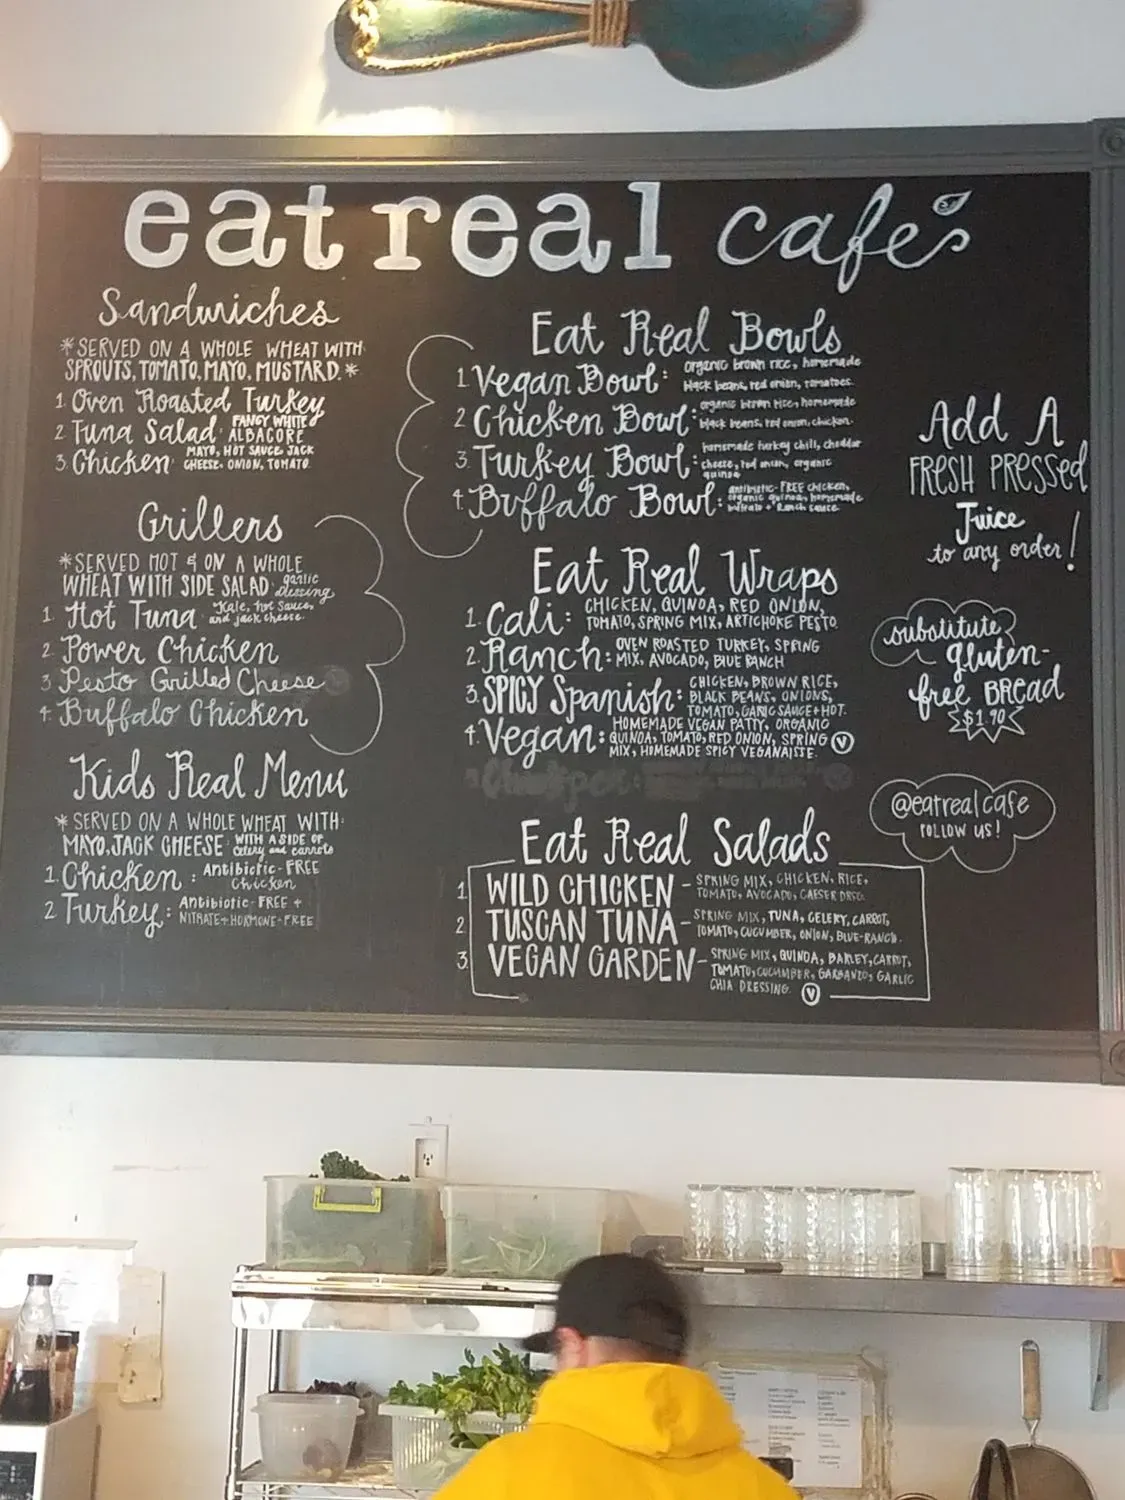 eat real café
Sandwiches
*SERVED ON A WHOLE WHEAT WITH
SPROUTS, TOMATO, MAYO, MUSTARD.*
1. Oven Roasted Turkey
2 Tuna Salad FANCY WHITE
ALBACORE
3. Chicken MAYO, HOT SAUCE, JACK
CHEESE, ONION, TOMATO.
Grillers
*SERVED HOT & ON A WHOLE
WHEAT WITH SIDE SALAD garlic
dressing
1. Hot Tuna Kale, hot sauce,
and jack cheese.
2. Power Chicken
3 Pesto Grilled Cheese
4. Buffalo Chicken
Kids Real Menu
*SERVED ON A WHOLE WHEAT WITH:
MAYO, JACK CHEESE WITH A SIDE OF
celery and carrots
1. Chicken: Antibiotic-FREE
Chicken
2 Turkey: Antibiotic-FREE +
NITRATE+HORMONE-FREE
Eat Real Bowls
1. Vegan Bowl: organic brown rice, homemade
black beans, red onion, tomatoes.
2 Chicken Bowl: organic brown rice, homemade
black beans, red onion, chicken.
3. Turkey Bowl: homemade turkey chili, cheddar
cheese, red onion, organic
quinoa
4. Buffalo Bowl: antibiotic-FREE chicken,
organic quinoa, homemade
buffalo + Ranch sauce
Eat Real Wraps
1. Cali: CHICKEN, QUINOA, RED ONION,
TOMATO, SPRING MIX, ARTICHOKE PESTO.
2. Ranch: OVEN ROASTED TURKEY, SPRING
MIX, AVOCADO, BLUE RANCH
3. SPICY Spanish: CHICKEN, BROWN RICE,
BLACK BEANS, ONIONS,
TOMATO, GARLIC SAUCE + HOT.
4. Vegan: HOMEMADE VEGAN PATTY, ORGANIC
QUINOA, TOMATO, RED ONION, SPRING V
MIX, HOMEMADE SPICY VEGANAISE.
Eat Real Salads
1. WILD CHICKEN - SPRING MIX, CHICKEN, RICE,
TOMATO, AVOCADO, CAESER DRSG.
2. TUSCAN TUNA - SPRING MIX, TUNA, CELERY, CARROT,
TOMATO, CUCUMBER, ONION, BLUE-RANCH.
3. VEGAN GARDEN - SPRING MIX, QUINOA, BARLEY, CARROT,
TOMATO, CUCUMBER, GARBANZO, GARLIC
CHIA DRESSING. V
Add A
FRESH PRESSED
Juice
to any order!
substitute
gluten-
free BREAD
$1.70
@eatrealcafe
FOLLOW US!